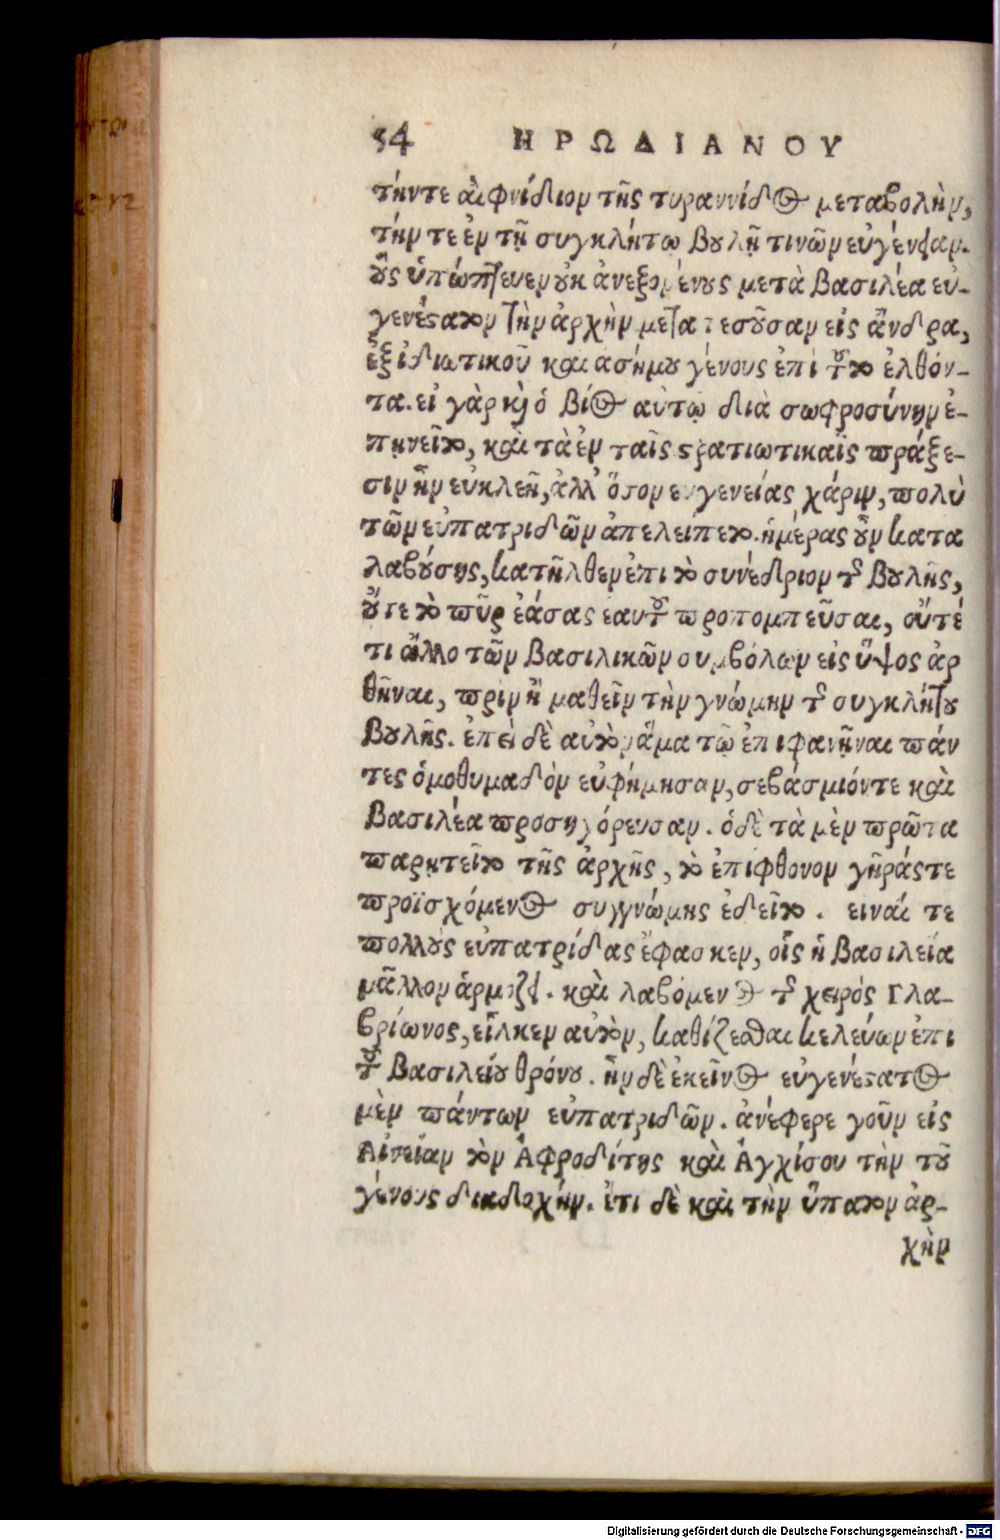 54 ΗΡΩΔΙΑΝΟΥ
τήντε αἰφνίδιον τῆς τυραννίδος μεταβολὴν,
τήν τε ἐν τῇ συγκλήτῳ βουλῇ τινῶν εὐγένειαν.
οὓς ὑπώπτευεν οὐκ ἀνεξομένους μετὰ βασιλέα εὐ-
γενέστατον τὴν ἀρχὴν μεταπεσοῦσαν εἰς ἄνδρα,
ἐξ ἰδιωτικοῦ καὶ ἀσήμου γένους ἐπὶ τοῦτο ἐλθόν-
τα. εἰ γὰρ καὶ ὁ βίος αὐτῷ διὰ σωφροσύνην ἐ-
πῃνεῖτο, καὶ τὰ ἐν ταῖς στρατιωτικαῖς πράξε-
σιν ἦν εὐκλεῆ, ἀλλ' ὅσον εὐγενείας χάριν, πολὺ
τῶν εὐπατριδῶν ἀπελείπετο. ἡμέρας οὖν κατα
λαβούσης, κατῆλθεν ἐπι τὸ συνέδριον τῆς βουλῆς,
οὔτε τὸ πῦρ ἐάσας ἑαυτοῦ προπομπεῦσαι, οὔτέ
τι ἄλλο τῶν βασιλικῶν συμβόλων εἰς ὕψος ἀρ
θῆναι, πρὶν ἢ μαθεῖν τὴν γνώμην τῆς συγκλήτου
βουλῆς. ἐπεὶ δὲ αὐτὸν ἅμα τῷ ἐπιφανῆναι πάν
τες ὁμοθυμαδὸν εὐφήμησαν, σεβάσμιόντε καὶ
βασιλέα προσηγόρευσαν. ὁδὲ τὰ μὲν πρῶτα
παρῃτεῖτο τῆς ἀρχῆς, τὸ ἐπίφθονον γῆράστε
προϊσχόμενος συγγνώμης ἐδεῖτο. ειναί τε
πολλοὺς εὐπατρίδας ἔφασκεν, οἷς ἡ βασιλεία
μᾶλλον ἁρμόζει. καὶ λαβόμενος τῆς χειρός Γλα-
βρίωνος, εἷλκεν αὐτὸν, καθίζεσθαι κελεύων ἐπι
τοῦ βασιλείου θρόνου. ἦν δὲ ἐκεῖνος εὐγενέστατος
μὲν πάντων εὐπατριδῶν. ἀνέφερε γοῦν εἰς
Αἰνείαν τὸν Ἀφροδίτης καὶ Ἀγχίσου τὴν τοῦ
γένους διαδοχήν. ἔτι δὲ καὶ τὴν ὕπατον ἀρ-
χὴν
Digitalisierung gefördert durch die Deutsche Forschungsgemeinschaft - DFG